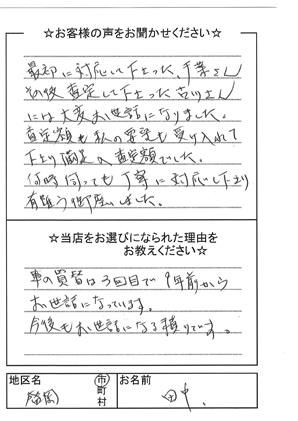 ☆お客様の声をお聞かせください☆
最初に対応して下さった、千葉さん
その後査定して下さった古川さん
には大変お世話になりました。
査定額も私の要望も受け入れて
下さり満足の査定額でした。
何時伺っても丁寧に対応し下さり
有難う御座いました。
☆当店をお選びになられた理由を
お教えください☆
車の買替は3回目で9年前から
お世話になっています。
今後もお世話になる積りです。
地区名
市
町
村
お名前
盛岡
田中